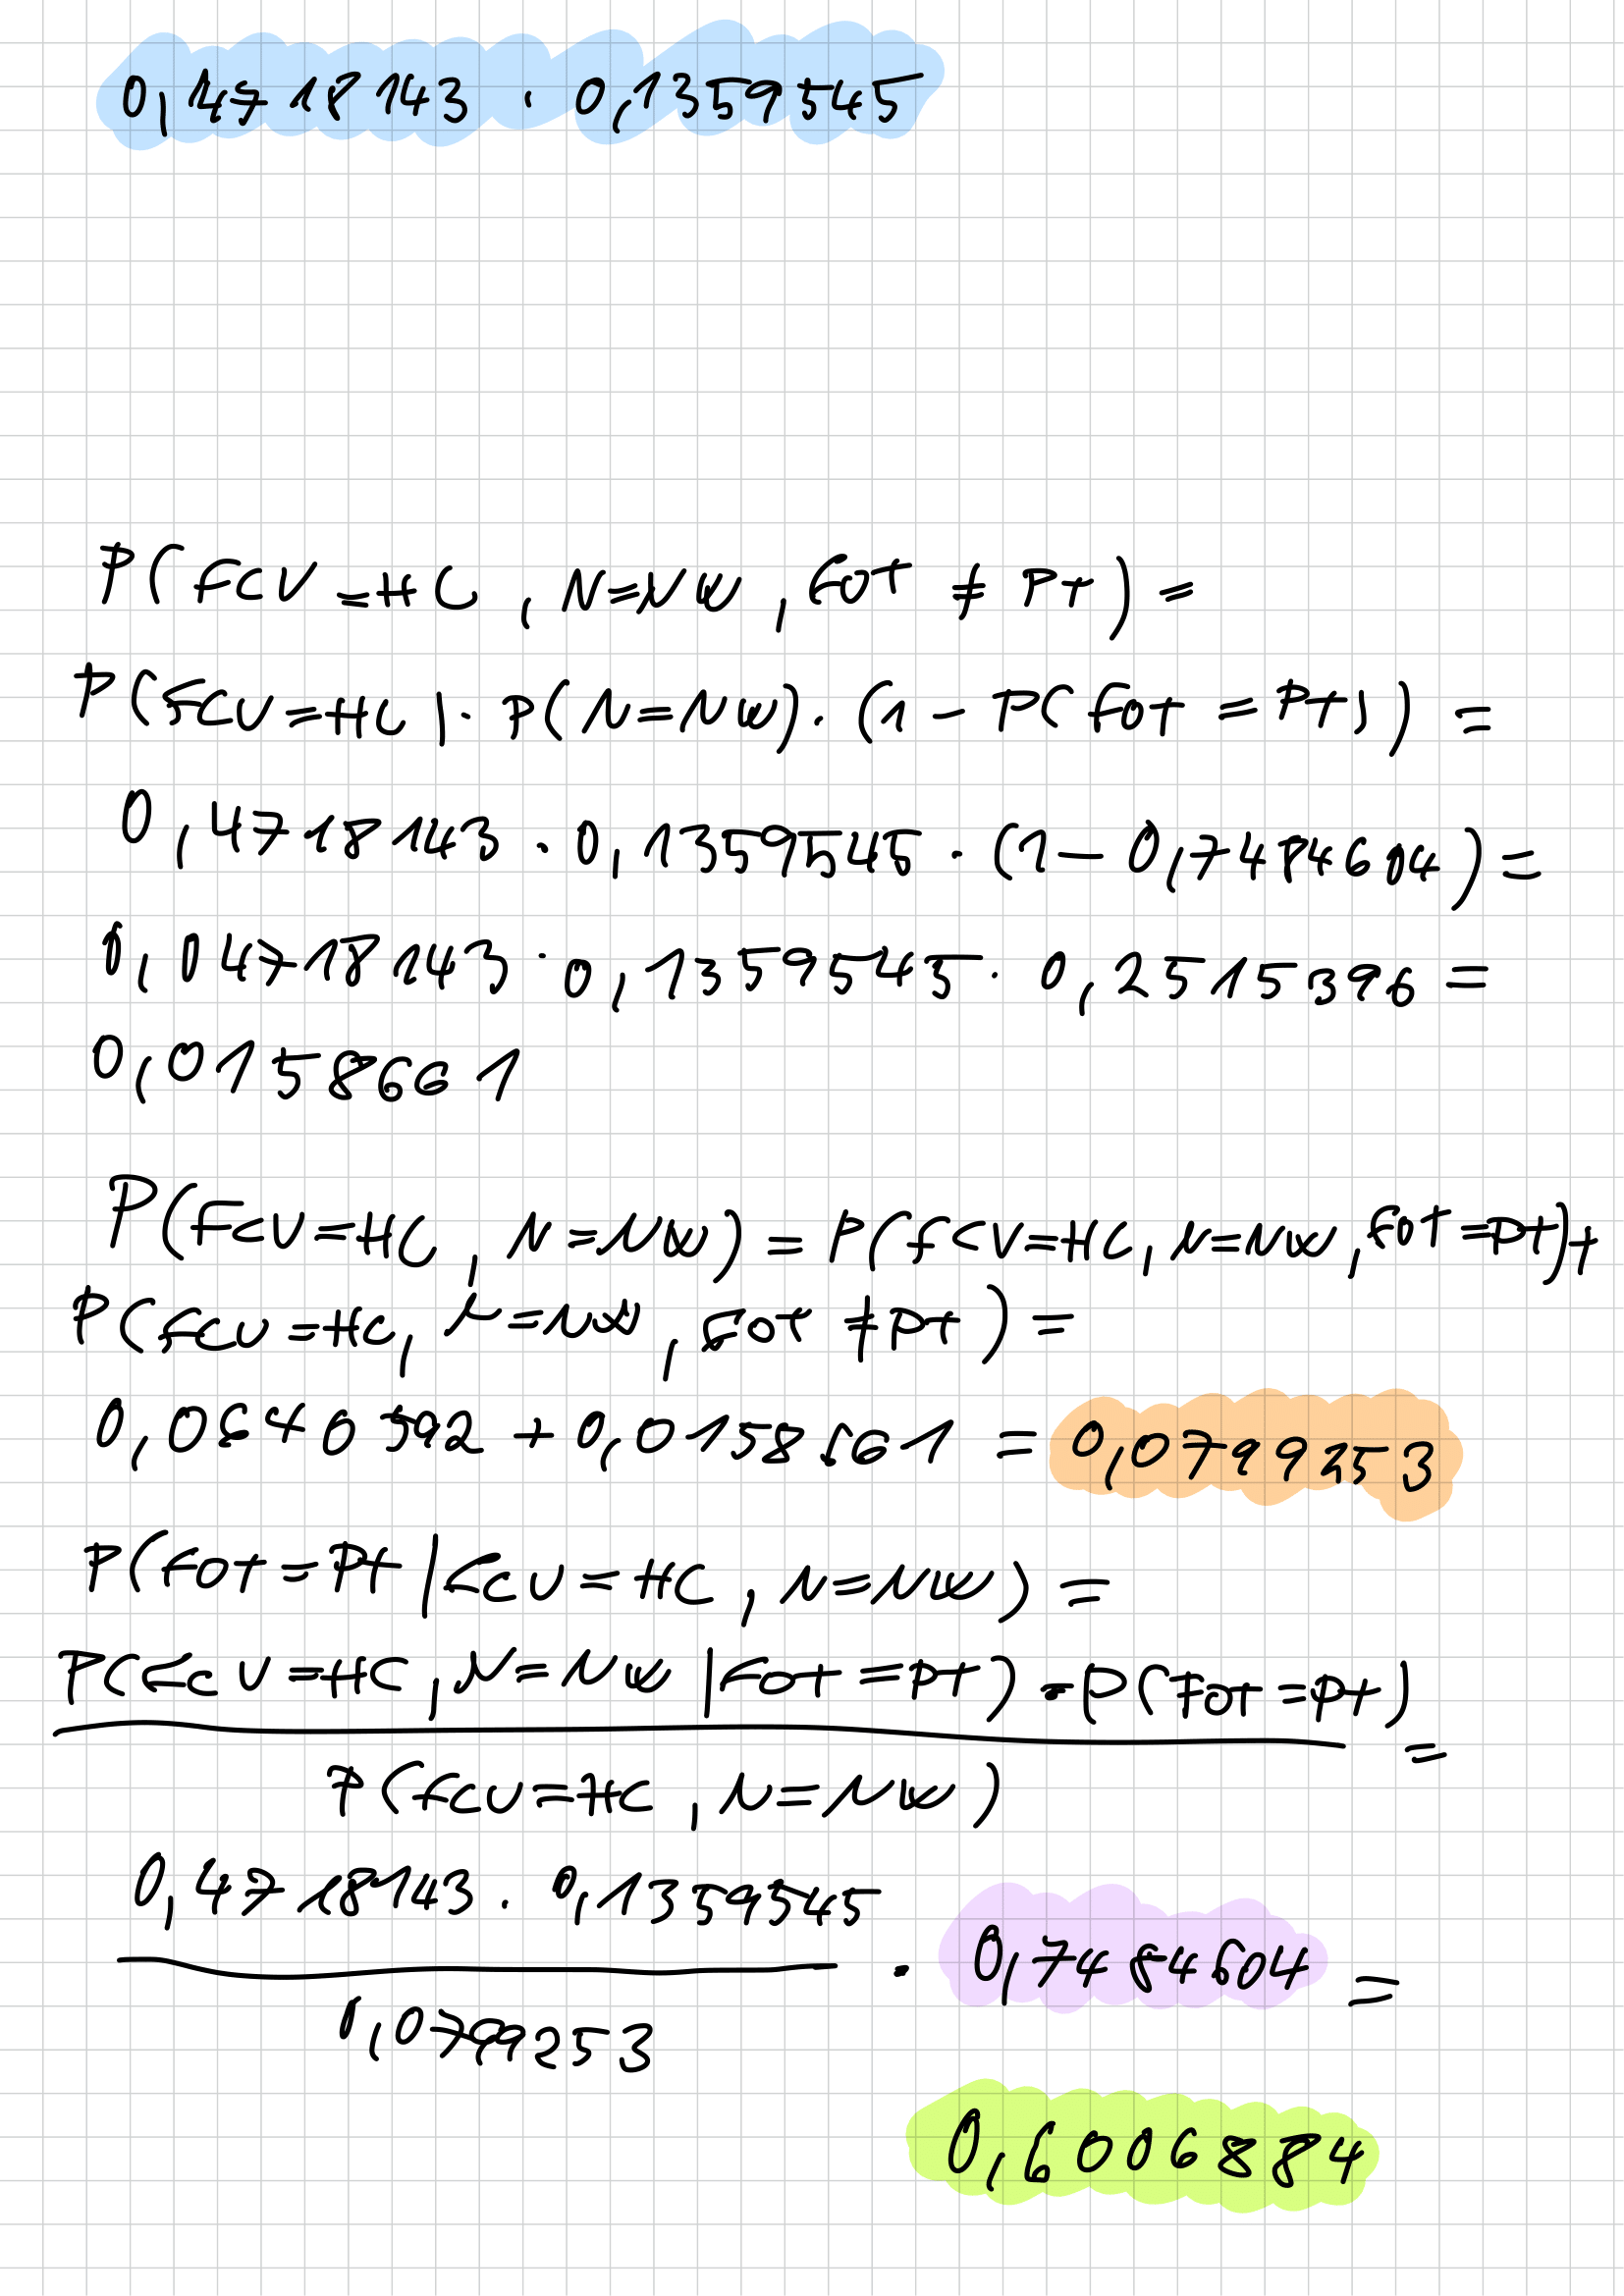 0,4718143 · 0,1359545
P(FCV=HC, N=NW, FOT ≠ PT) =
P(FCV=HC|· P(N=NW)· (1 - P(FOT = PT)) =
0,4718143 · 0,1359545 · (1 - 0,7484604) =
0,04718143 · 0,1359545 · 0,2515396 =
0,0158661
P(FCV=HC, N=NW) = P(FCV=HC, N=NW, FOT=PT)+
P(FCV=HC, N=NW, FOT ≠ PT) =
0,0640592 + 0,0158661 = 0,0799253
P(FOT=PT|FCV=HC, N=NW) =
P(FCV=HC, N=NW|FOT=PT) · P(FOT=PT) =
P(FCV=HC, N=NW)
0,4718143 · 0,1359545 · 0,7484604 =
0,0799253
0,6006884